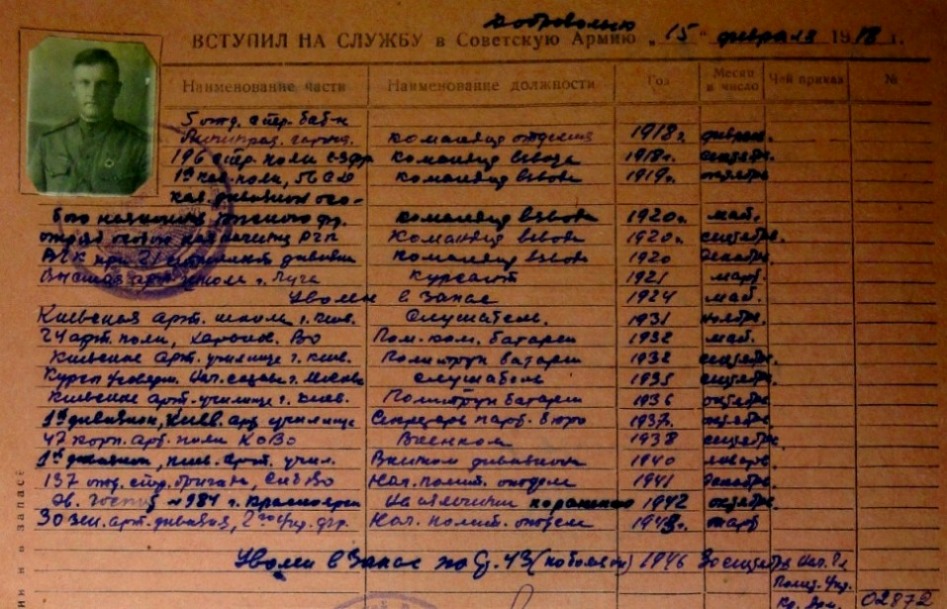 добровольно
ВСТУПИЛ НА СЛУЖБУ в Советскую Армию „15“ февраля 1918 г.
Наименование части Наименование должности Год Месяц и число Чей приказ №
5 отд. стр. бат-н
командир отделения 1918 г. февраль.
196 стр. полк командир взвода 1918 г. сентябрь.
1й кав. полк, 56 СД командир взвода 1919 г. октябрь
кав. дивизион осо-
бого назначения фр. командир взвода 1920 г. май.
отряд особого назначения командир взвода 1920 г. сентябрь.
при 21 стрелковой дивизии командир взвода 1920 декабрь.
Высшая арт. школа г. Луга курсант 1921 март.
Уволен в запас 1924 май.
Киевская арт. школа г. Киев. Слушатель. 1931 ноябрь.
24 арт. полк, Харьков. ВО Пом. ком. батареи 1932 май.
Киевское арт. училище г. Киев. Политрук батареи 1932 сентябрь.
Курсы усоверш. г. Москва слушатель 1935 сентябрь.
Киевское арт. училище г. Киев. Политрук батареи 1936 октябрь
1й дивизион, Киев. арт. училище Секретарь парт. бюро 1937. октябрь
47 корп. арт. полк КОВО Военком 1938 сентябрь.
1й дивизион, Киев. арт. учил. Военком дивизиона 1940 январь.
137 отд. стр. бригада, СибВО Нач. полит. отдела 1941 декабрь.
Эв. Госпит. №984 г. Красноярск На излечении 1942 октябрь.
30 зен. арт. дивизия, Нач. полит. отдела 1943 г. март
Уволен в запас по ст. 43 (по болезни) 1946 30 сентябрь
Полит. Упр.
02872
ин о запасе